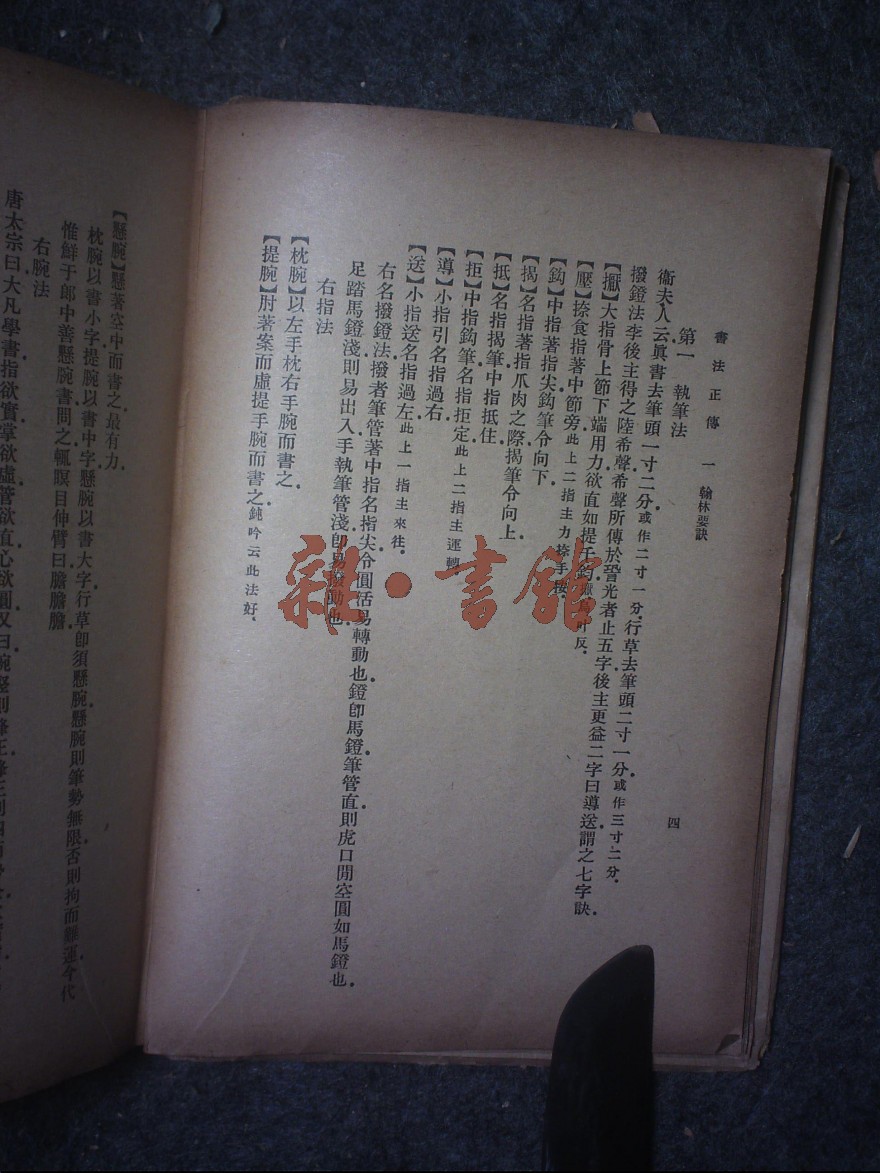 書法正傳　一　翰林要訣
四
第一　執筆法
衞夫人云眞書去筆頭一寸二分或作二寸一分．行草去筆頭二寸一分．或作三寸二分．
撥鐙法李後主得之陸希聲．希聲所傳於晉光者止五字．後主更益二字曰導送．謂之七字訣．
【擫】大指骨上節下端用力欲直如提千鈞．
【壓】捺食指著中節旁．此上二指主力．
【鈎】中指著指尖鈎筆令向下．
【揭】名指著指爪肉之際揭筆令向上．
【抵】名指揭筆中指抵住．
【拒】中指鈎筆名指拒定．此上二指主運轉．
【導】小指引名指過右．
【送】小指送名指過左．此上一指主來往．
右名撥鐙法．撥者筆管著中指名指尖令圓活易轉動也．鐙卽馬鐙．筆管直則虎口間空圓如馬鐙也．
足踏馬鐙淺則易出入．手執筆管淺卽易撥動也．
右指法
【枕腕】以左手枕右手腕而書之．
【提腕】肘著案而虛提手腕而書之．鈍吟云此法好．
【懸腕】懸著空中而書之最有力．
枕腕以書小字．提腕以書中字．懸腕以書大字．行草卽須懸腕．懸腕則筆勢無限．否則拘而難運．今代
惟鮮于郎中善懸腕書．問之．輒瞑目伸臂曰膽膽膽．
右腕法
唐太宗曰．大凡學書．指欲實．掌欲虛．管欲直．心欲圓．又曰．腕豎則鋒正．
雜·書館